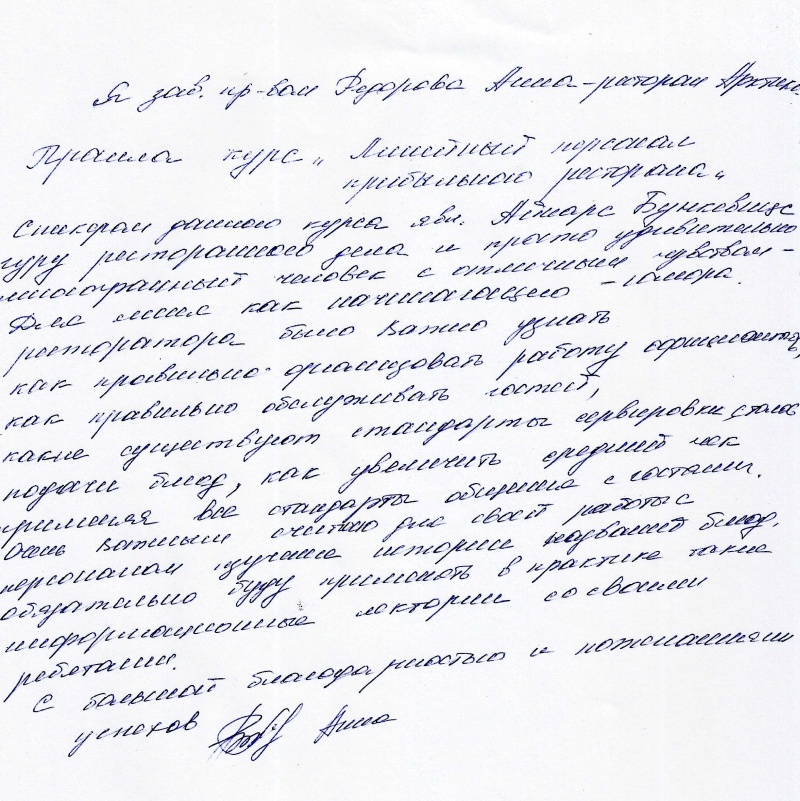 Я зав. пр-вом Федорова Анна - ресторан Арктика
Прошла курс „Элитный персонал
прибыльного ресторана„
Спикером данного курса явл. Айжарс Бункевщис
гуру ресторанного дела и просто удивительно
многогранный человек с отличным чувством -
Для меня как начинающего - юмора.
ресторатора было важно узнать
как правильно организовать работу официантов,
как правильно обслуживать гостей,
какие существуют стандарты сервировки столов
подачи блюд, как увеличить средний чек
применяя все стандарты общения с гостями.
Очень важным считаю для своей работы с
персоналом изучение истории названий блюд.
обязательно буду применять в практике такие
информационные лектории со своими
ребятами.
С большой благодарностью и пожеланиями
успехов Анна